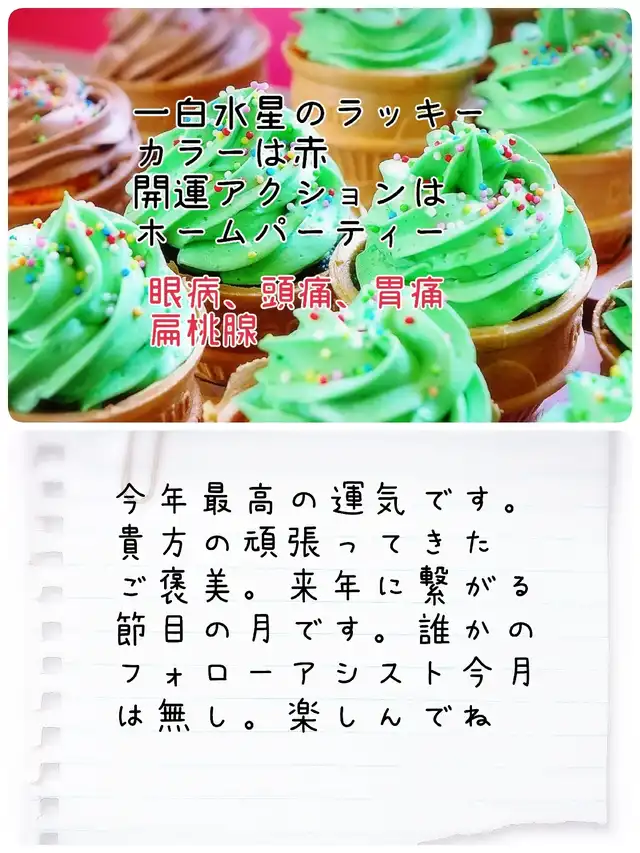 一白水星のラッキー
カラーは赤
開運アクションは
ホームパーティー
眼病、頭痛、胃痛
扁桃腺
今年最高の運気です。
貴方の頑張ってきた
ご褒美。来年に繋がる
節目の月です。誰かの
フォローアシスト今月
は無し。楽しんでね